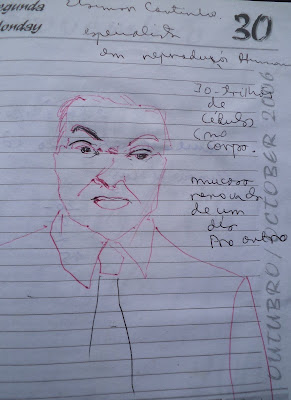 egunda
onday
30
Elsimar Coutinho.
especialista
em reprodução Humana
30 trilhões
de
Células
no
Corpo.
mucosa
renovada
de um
dia
Pro outro
OUTUBRO/OCTOBER 2006